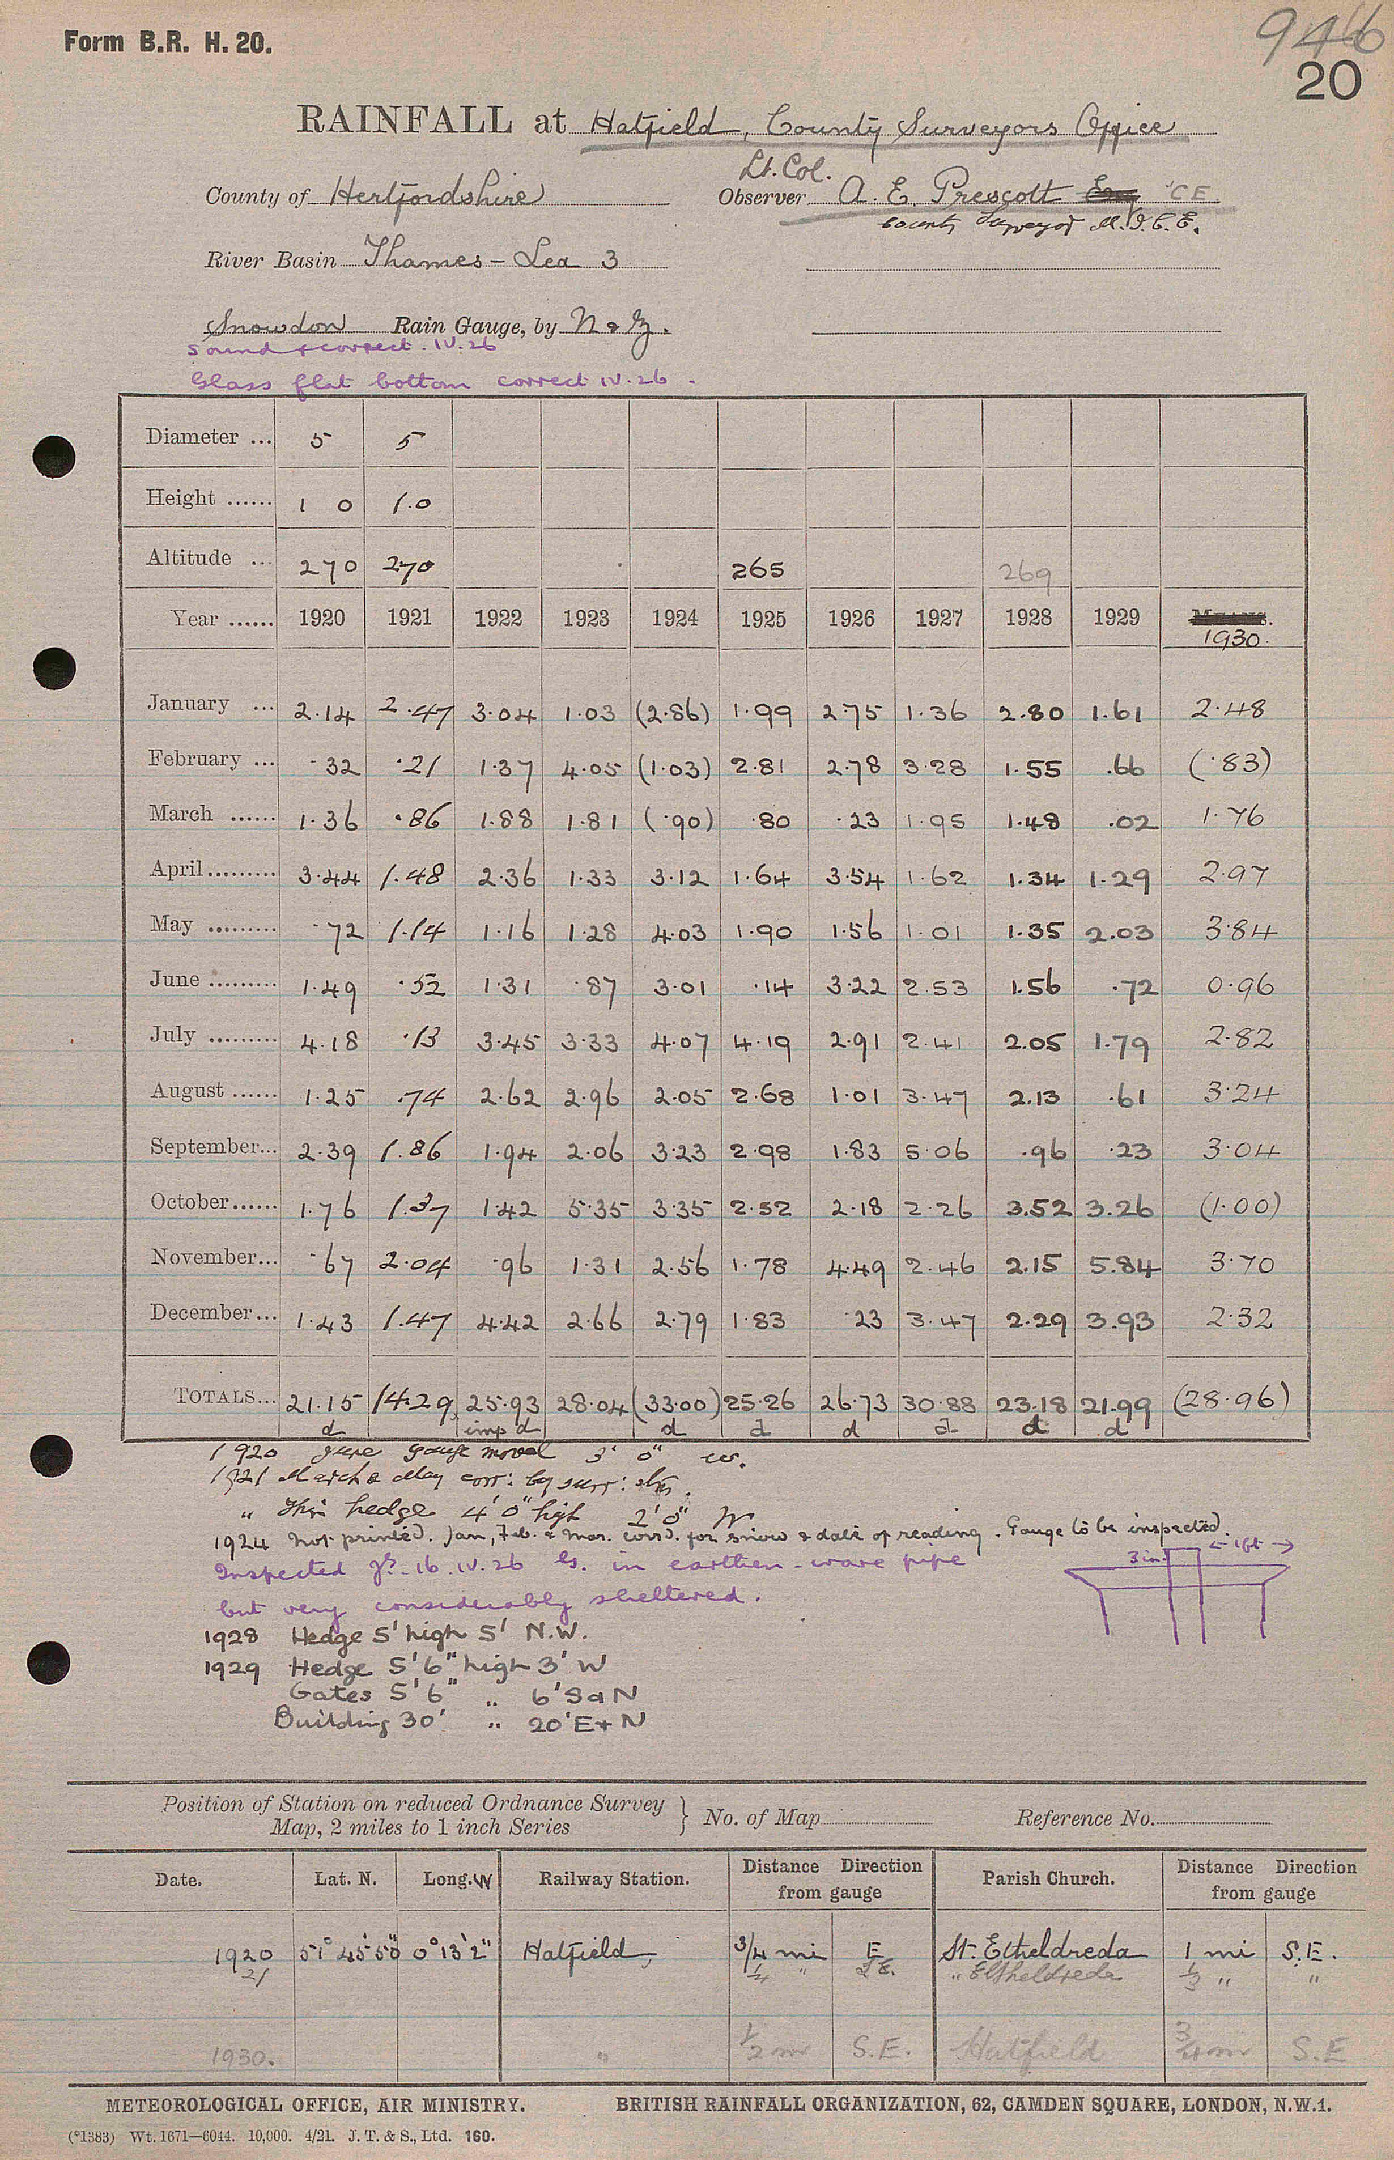 Form B.R. H. 20.
946
20
RAINFALL at Hatfield, County Surveyors Office
Lt. Col.
County of Hertfordshire Observer A. E. Prescott Esq CE
County Surveyor M.I.C.E.
River Basin Thames - Lea 3
Snowdon Rain Gauge, by N & Z.
Sound & correct. IV. 26
Glass flat bottom correct IV. 26.
Diameter ... 5 5
Height ...... 1 0 1.0
Altitude ... 270 270 265 269
Year ...... 1920 1921 1922 1923 1924 1925 1926 1927 1928 1929 Means.
1930.
January ... 2.14 2.47 3.04 1.03 (2.86) 1.99 2.75 1.36 2.80 1.61 2.48
February ... .32 .21 1.37 4.05 (1.03) 2.81 2.78 3.28 1.55 .66 (.83)
March ...... 1.36 .86 1.88 1.81 (.90) .80 .23 1.95 1.48 .02 1.76
April ......... 3.44 1.48 2.36 1.33 3.12 1.64 3.54 1.62 1.34 1.29 2.97
May ......... .72 1.14 1.16 1.28 4.03 1.90 1.56 1.01 1.35 2.03 3.84
June ......... 1.49 .52 1.31 .87 3.01 .14 3.22 2.53 1.56 .72 0.96
July ......... 4.18 .13 3.45 3.33 4.07 4.19 2.91 2.41 2.05 1.79 2.82
August ...... 1.25 .74 2.62 2.96 2.05 2.68 1.01 3.47 2.13 .61 3.24
September... 2.39 1.86 1.94 2.06 3.23 2.98 1.83 5.06 .96 .23 3.04
October...... 1.76 1.37 1.42 5.35 3.35 2.52 2.18 2.26 3.52 3.26 (1.00)
November... .67 2.04 .96 1.31 2.56 1.78 4.49 2.46 2.15 5.84 3.70
December... 1.43 1.47 4.42 2.66 2.79 1.83 .23 3.47 2.29 3.93 2.32
TOTALS... 21.15 14.29 25.93 28.04 (33.00) 25.26 26.73 30.88 23.18 21.99 (28.96)
d imp d d d d d d d
1920 June Gauge moved 3' 0" W.
1921 March & May corr: by surr: stns.
" This hedge 4' 0" high 2' 0" W
1924 Not printed. Jan, Feb. & Mar. corrd. for snow & date of reading. Gauge to be inspected.
Inspected 16. IV. 26 G. in earthen-ware pipe
but very considerably sheltered.
3 in. ← 1ft →
1928 Hedge 5' high 5' N.W.
1929 Hedge 5' 6" high 3' W
Gates 5' 6" " 6' S & N
Building 30' " 20' E + N
Position of Station on reduced Ordnance Survey
Map, 2 miles to 1 inch Series } No. of Map Reference No.
Date. Lat. N. Long. W Railway Station. Distance Direction from gauge Parish Church. Distance Direction from gauge
1920 51° 45' 50" 0° 13' 2" Hatfield 3/4 mi E St. Etheldreda 1 mi S.E.
21 1/4 " S.E. " Etheldreda 1/3 " "
1930. " 1/2 m S.E. Hatfield 3/4 m S.E
METEOROLOGICAL OFFICE, AIR MINISTRY. BRITISH RAINFALL ORGANIZATION, 62, CAMDEN SQUARE, LONDON, N.W.1.
(*1383) Wt. 1671—6044. 10,000. 4/21. J. T. & S., Ltd. 160.